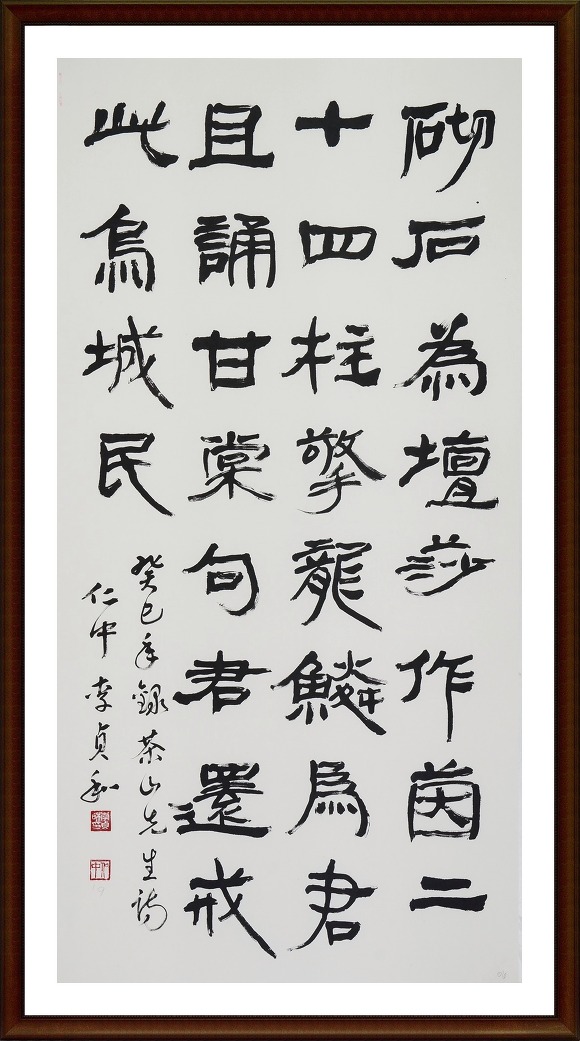 砌石為壇莎作茵二
十四柱擎龍鱗爲君
且誦甘棠句君還戒
此烏城民
癸巳年錄茶山先生詩
仁中 李貞和